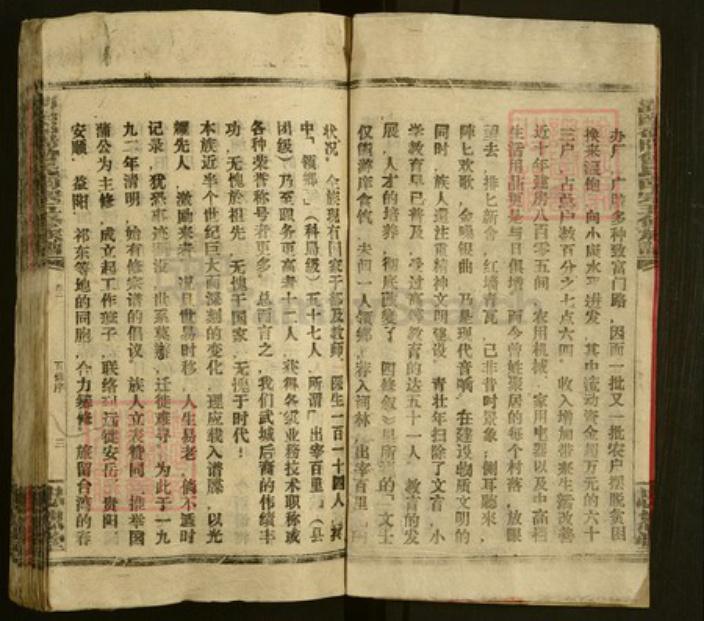 办厂、广辟多种致富门路，因而一批又一批农户摆脱贫困
换来温饱、向小康水平进发，其中流动资金超万元的六十
三户，占总户数百分之七点六四，收入增加带来生活改善
近十年建房八百零五间，农用机械、家用电器以及中高档
生活用品更是与日俱增，而今曾姓聚居的每个村落，放眼
望去，排匕新舍，红墙青瓦，已非昔时景象；侧耳聽来，
阵匕欢歌，金嗓银曲，乃是现代音响，在建设物质文明的
同时，族人还注重精神文明建设，青壮年扫除了文盲，小
学教育早已普及，受过高等教育的达五十一人，教育的发
展，人才的培养，彻底改变了 四修叙 里所 的「文士
仅能游庠食饩，未闻一人领乡 荐入词林 出宰百里
状况，全族现有国家干部及教师、医生一百一十四人，其
中「领乡 」（科局级）五十七人，所謂「出宰百里」（县
团级）乃至职务更高者十二人，获得各级业務技术职称或
各种荣誉称号者更多，总而言之，我们武城后裔的伟绩丰
功，无愧於祖先，无愧于国家，无愧于时代！
本族近半个世纪巨大而深刻的变化，理应载入谱牒，以光
耀先人，激励来者，况且世易时移，人生易老，倘不适时
记录，犹恐事迹湮没，世系莫 ，迁徙难寻，为此于一九
九二年清明，始有修宗谱的倡议，族人立表赞同，推举国
蒲公为主修，成立起工作班子，联络到远徙安岳、贵阳
安顺、益阳、祁东等地的同胞，合力臻修，旅留台湾的春